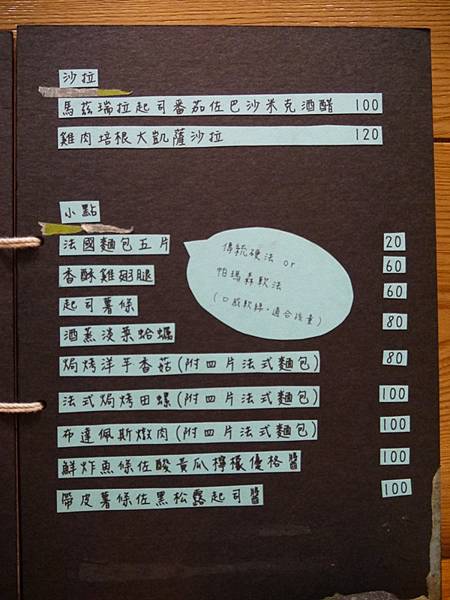 沙拉
馬茲瑞拉起司番茄佐巴沙米克酒醋 100
雞肉培根大凱薩沙拉 120
小點
法國麵包五片 20
傳統硬法 or
帕瑪森軟法
(口感軟綿,適合孩童)
香酥雞翅腿 60
起司薯條 60
酒蒸淡菜蛤蠣 80
焗烤洋芋香菇(附四片法式麵包) 80
法式焗烤田螺(附四片法式麵包) 100
布達佩斯燉肉(附四片法式麵包) 100
鮮炸魚條佐酸黃瓜檸檬優格醬 100
帶皮薯條佐黑松露起司醬 100